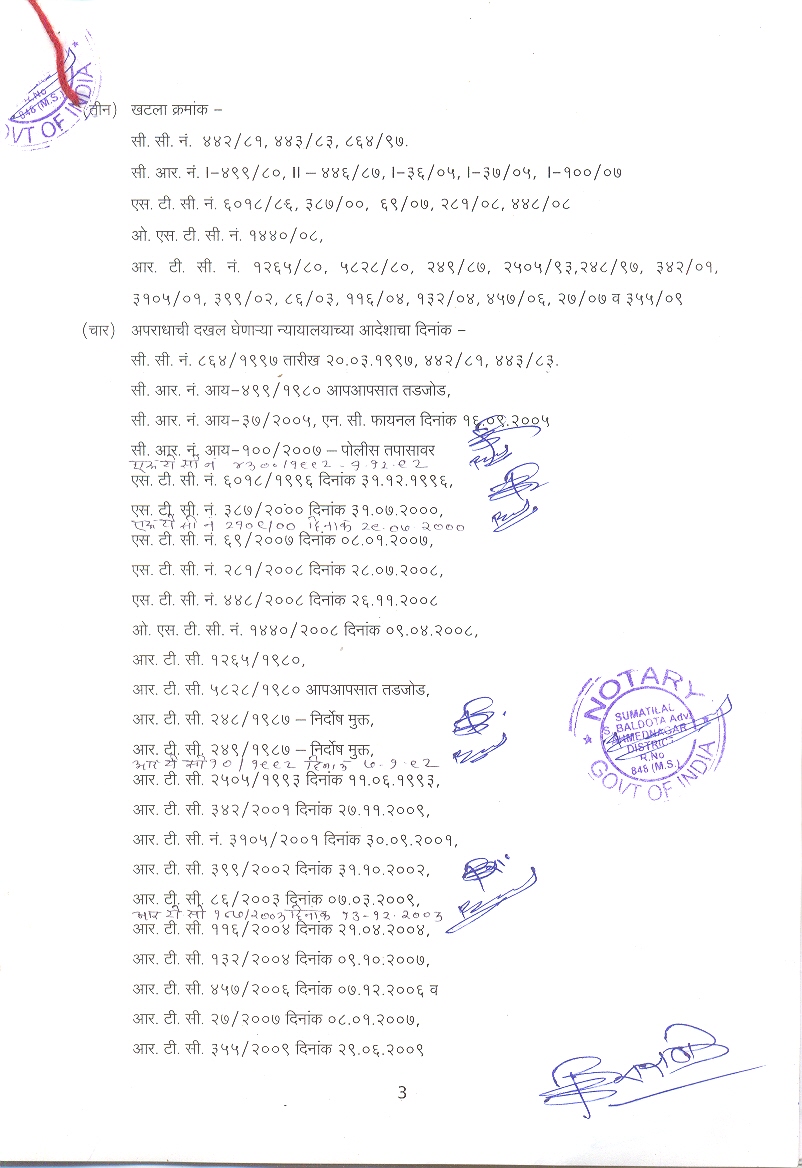 R.No
848 (M.S.)
GOVT OF INDIA
(तीन) खटला क्रमांक –
सी. सी. नं. ४४२/८१, ४४३/८३, ८६४/९७.
सी. आर. नं. I-४९९/८०, II – ४४६/८७, I-३६/०५, I-३७/०५, I-१००/०७
एस. टी. सी. नं. ६०१८/८६, ३८७/००, ६९/०७, २८१/०८, ४४८/०८
ओ. एस. टी. सी. नं. १४४०/०८,
आर. टी. सी. नं. १२६५/८०, ५८२८/८०, २४९/८७, २५०५/९३,२४८/९७, ३४२/०१,
३१०५/०१, ३९९/०२, ८६/०३, ११६/०४, १३२/०४, ४५७/०६, २७/०७ व ३५५/०९
(चार) अपराधाची दखल घेणाऱ्या न्यायालयाच्या आदेशाचा दिनांक –
सी. सी. नं. ८६४/१९९७ तारीख २०.०३.१९९७, ४४२/८१, ४४३/८३.
सी. आर. नं. आय-४९९/१९८० आपआपसात तडजोड,
सी. आर. नं. आय-३७/२००५, एन. सी. फायनल दिनांक १६.०९.२००५
सी. आर. नं. आय-१००/२००७ – पोलीस तपासावर
एस. टी. सी. नं. ६०१८/१९९६ दिनांक ३१.१२.१९९६,
एस. टी. सी. नं. ३८७/२००० दिनांक ३१.०७.२०००,
एस. टी. सी. नं. ६९/२००७ दिनांक ०८.०१.२००७,
एस. टी. सी. नं. २८१/२००८ दिनांक २८.०७.२००८,
एस. टी. सी. नं. ४४८/२००८ दिनांक २६.११.२००८
ओ. एस. टी. सी. नं. १४४०/२००८ दिनांक ०९.०४.२००८,
आर. टी. सी. १२६५/१९८०,
आर. टी. सी. ५८२८/१९८० आपआपसात तडजोड,
आर. टी. सी. २४८/१९८७ – निर्दोष मुक्त,
आर. टी. सी. २४९/१९८७ – निर्दोष मुक्त,
आर. टी. सी. २५०५/१९९३ दिनांक ११.०६.१९९३,
आर. टी. सी. ३४२/२००१ दिनांक २७.११.२००९,
आर. टी. सी. नं. ३१०५/२००१ दिनांक ३०.०९.२००१,
आर. टी. सी. ३९९/२००२ दिनांक ३१.१०.२००२,
आर. टी. सी. ८६/२००३ दिनांक ०७.०३.२००९,
आर टी सी १८७/२००३ दिनांक १३-१२-२००३
आर. टी. सी. ११६/२००४ दिनांक २१.०४.२००४,
आर. टी. सी. १३२/२००४ दिनांक ०९.१०.२००७,
आर. टी. सी. ४५७/२००६ दिनांक ०७.१२.२००६ व
आर. टी. सी. २७/२००७ दिनांक ०८.०१.२००७,
आर. टी. सी. ३५५/२००९ दिनांक २९.०६.२००९
NOTARY
SUMATILAL
S. BALDOTA Adv.
AHMEDNAGAR
DISTRICT
R.No
848 (M.S.)
GOVT OF INDIA
3